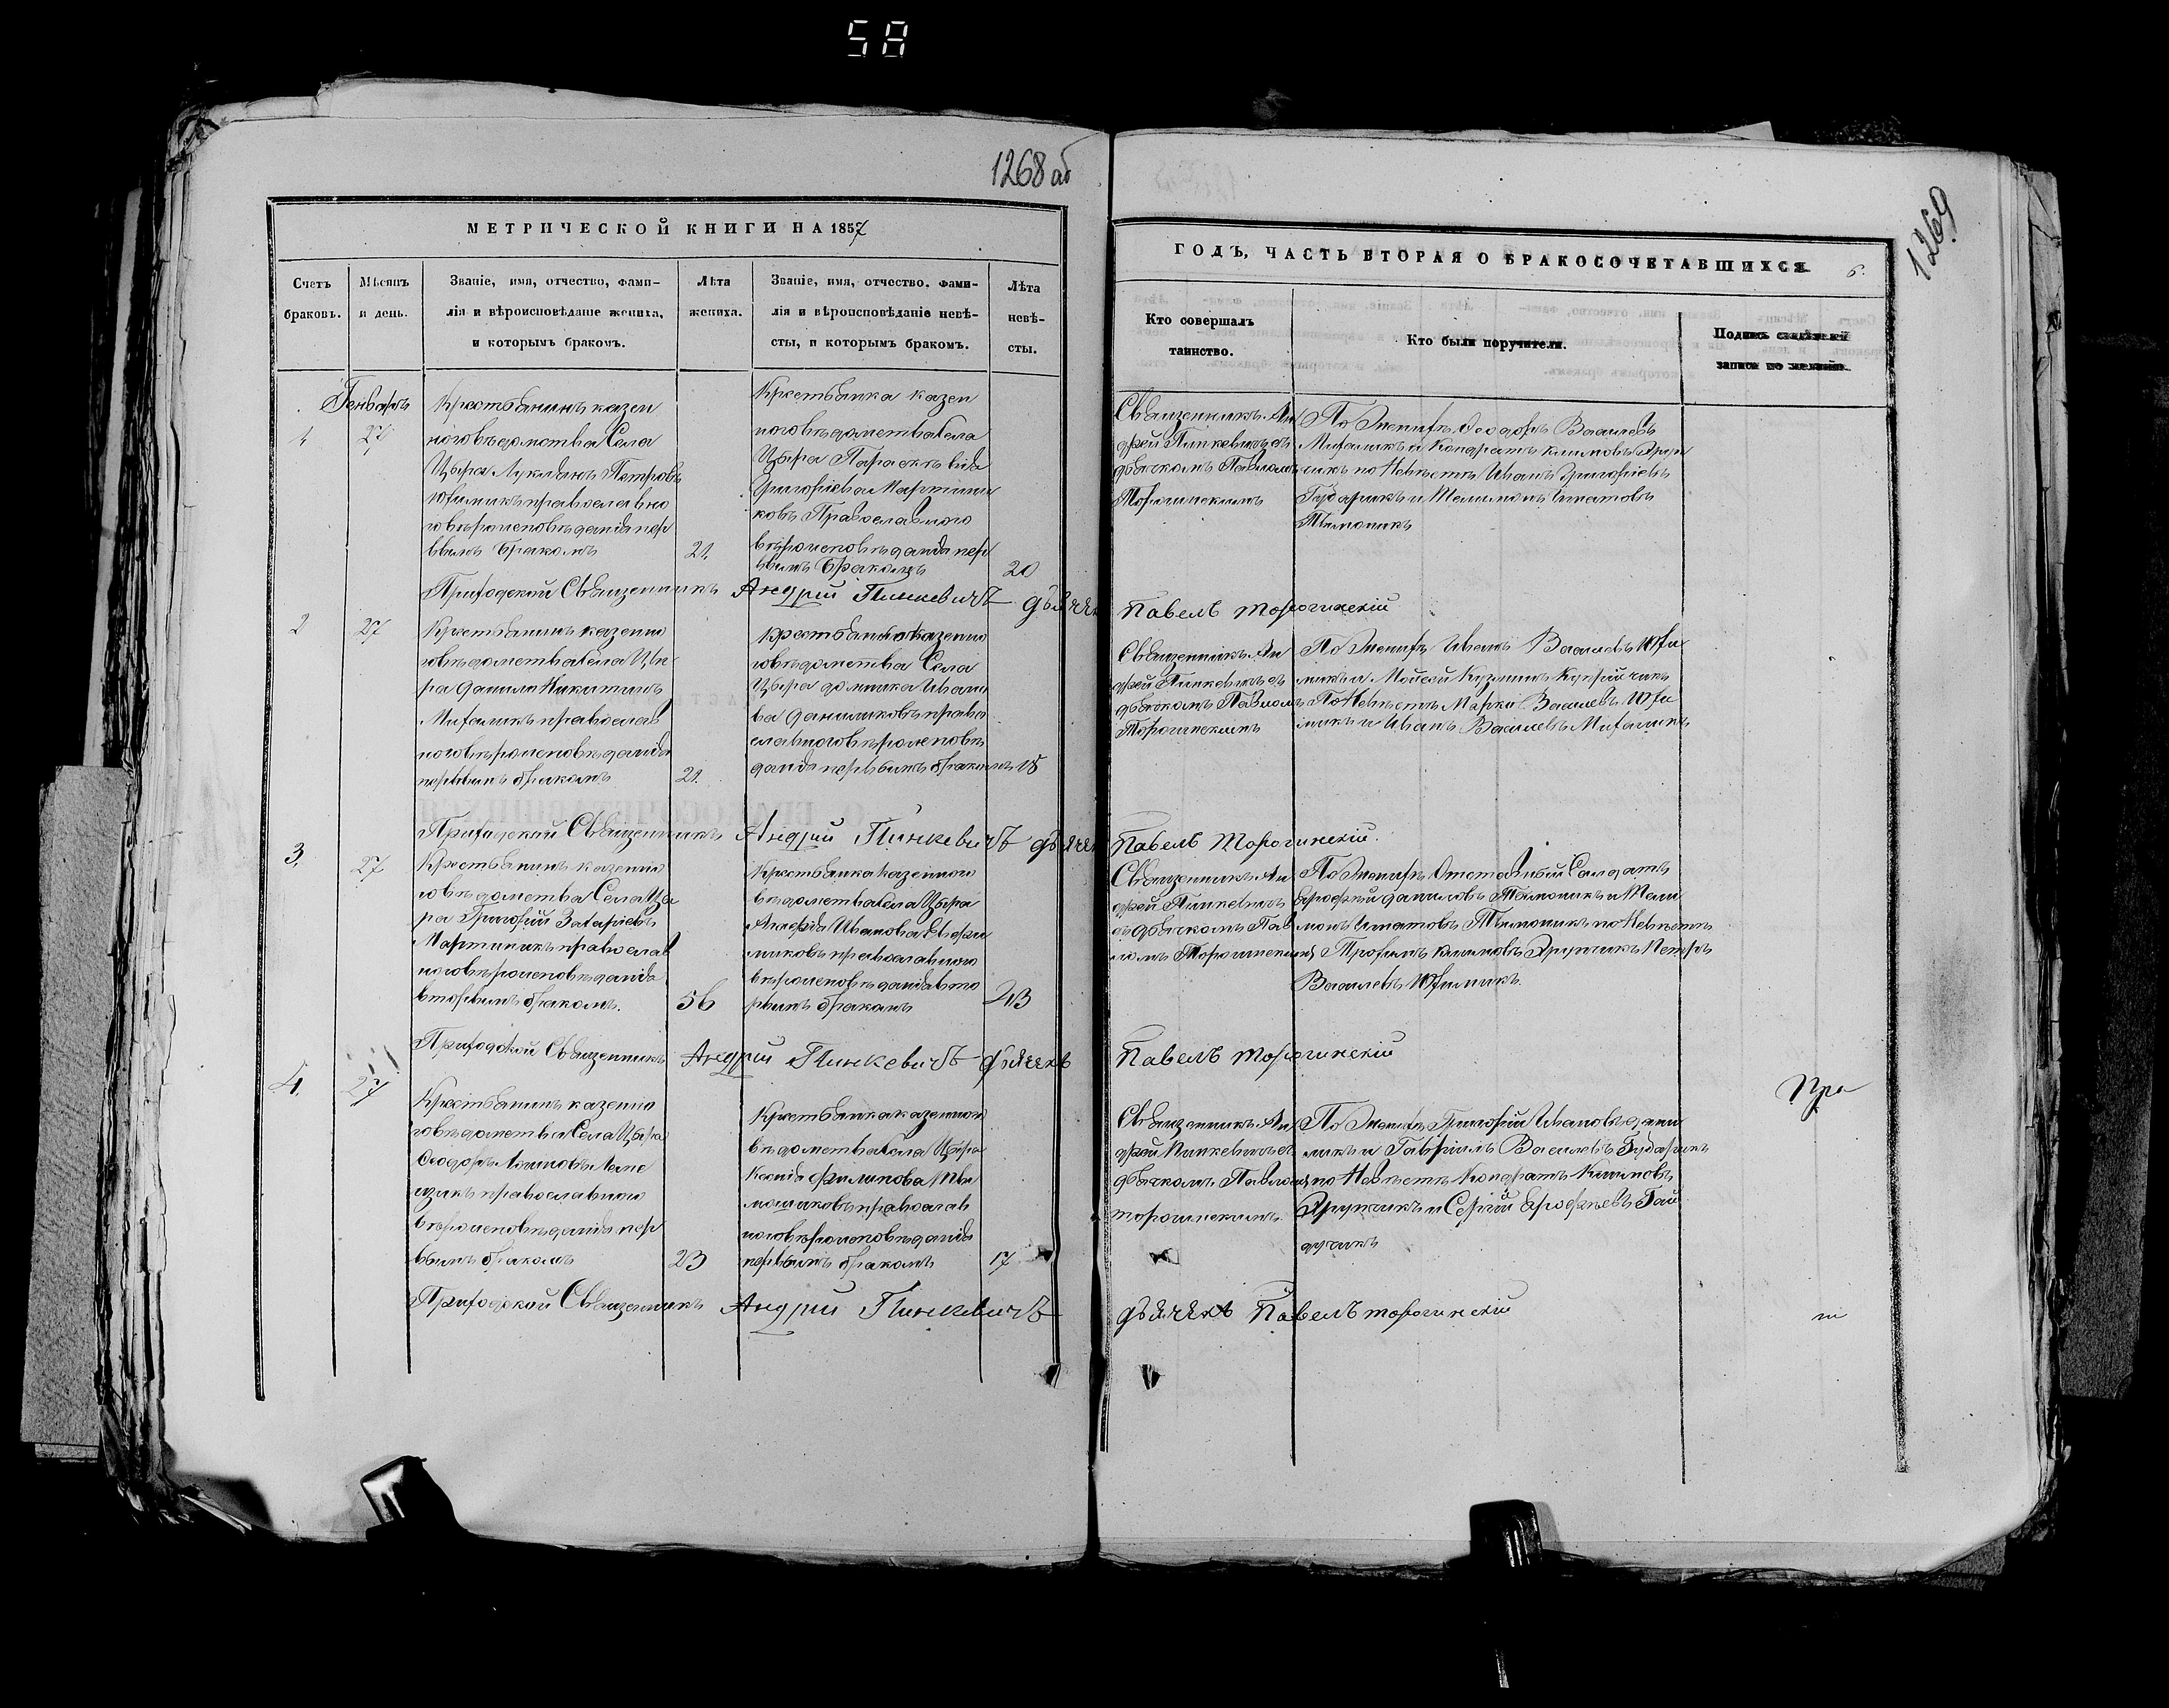 58
1268 об
МЕТРИЧЕСКОЙ КНИГИ НА 1857
Счетъ браковъ.
Мѣсяцъ и день.
Званіе, имя, отчество, фами-
лія и вѣроисповѣданіе жениха,
и которымъ бракомъ.
Лѣта
жениха.
Званіе, имя, отчество, фами-
лія и вѣроисповѣданіе невѣ-
сты, и которымъ бракомъ.
Лѣта
невѣ-
сты.
Генварь
1
27
Крестьянинъ казен
ного вѣдомства Села
Цыра Лукіянъ Петровъ
Юхимикъ православно
го вѣроисповѣданія пер
вымъ бракомъ
21.
Крестьянка казен
ного вѣдомства Села
Цыра Параскевія
Григоріева Мартини
ковъ Православного
вѣроисповѣданія пер
вымъ бракомъ
20
Приходской Священникъ Андрій Пинкевичъ дьячекъ
2
27
Крестьянинъ казенно
го вѣдомства Села Цы
ра Данило Никитинъ
Михаликъ православ
ного вѣроисповѣданія
первымъ бракомъ
21.
Крестьянка казенно
го вѣдомства Села
Цыра Домника Ивано
ва Даниликовъ право
славного вѣроисповѣ
данія первымъ бракомъ
18
Приходской Священникъ Андрій Пинкевичъ дьячекъ
3.
27
Крестьянинъ казенно
го вѣдомства Села Цы
ра Григорій Захаріевъ
Мартиникъ православ
ного вѣроисповѣданія
вторымъ бракомъ.
56
Крестьянка казенного
вѣдомства Села Цыра
Ивановa
миковъ православного
вѣроисповѣданія вто
рымъ бракомъ
43
Приходской Священникъ Андрій Пинкевичъ дьячекъ
4.
27
Крестьянинъ казенно
го вѣдомства Села Цыра
Феодоръ
православного
вѣроисповѣданія пер
вымъ бракомъ
23
Крестьянка казенного
вѣдомства Села Цыра
Ксенія Филипова Ты
мошиковъ православ
ного вѣроисповѣданія
первымъ бракомъ
17
Приходской Священникъ Андрій Пинкевичъ
1269
ГОДЪ, ЧАСТЬ ВТОРАЯ О БРАКОСОЧЕТАВШИХСЯ
6.
Кто совершалъ
таинство.
Кто были поручители.
Подпись свидѣтелей
записи по желанію.
Священникъ Ан
дрей Пинкевичъ съ
дьячкомъ Павломъ
Торогинскимъ
По Женихѣ Феодоръ Васильевъ
Михаликъ и Кондратъ Климовъ Друп
чикъ по Невѣстѣ Иванъ Григоріевъ
Гударикъ и Игнатовъ
Тымошикъ
Павелъ Торогинскій
Священникъ Ан
дрей Пинкевичъ съ
дьячкомъ Павломъ
Торогинскимъ
По Женихѣ Иванъ Васильевъ Юхи
микъ и Мойсей Кузминъ
По Невѣстѣ Марко Васильевъ Юхи
микъ и Иванъ Васильевъ Михаликъ
Павелъ Торогинскій.
Священникъ Ан
дрей Пинкевичъ
съ дьячкомъ Пав
ломъ Торогинскимъ
По Женихѣ Отставный Салдатъ
Ерофей Даниловъ Тымошикъ и
Игнатовъ Тымошикъ по Невѣстѣ
Трофимъ Климовъ Друпчикъ Петръ
Васильевъ Юхимикъ.
Павелъ Торогинскій
Священникъ Ан
дрей Пинкевичъ съ
дьячкомъ Павломъ
Торогинскимъ.
По Женихѣ Григорій Ивановъ Дани
ликъ и Гавріилъ Васильевъ Гударикъ
по Невѣстѣ Кондратъ Климовъ
Друпчикъ и Сергій Ерофѣевъ Гай
дучикъ
Пра
дьячекъ Павелъ Торогинскій